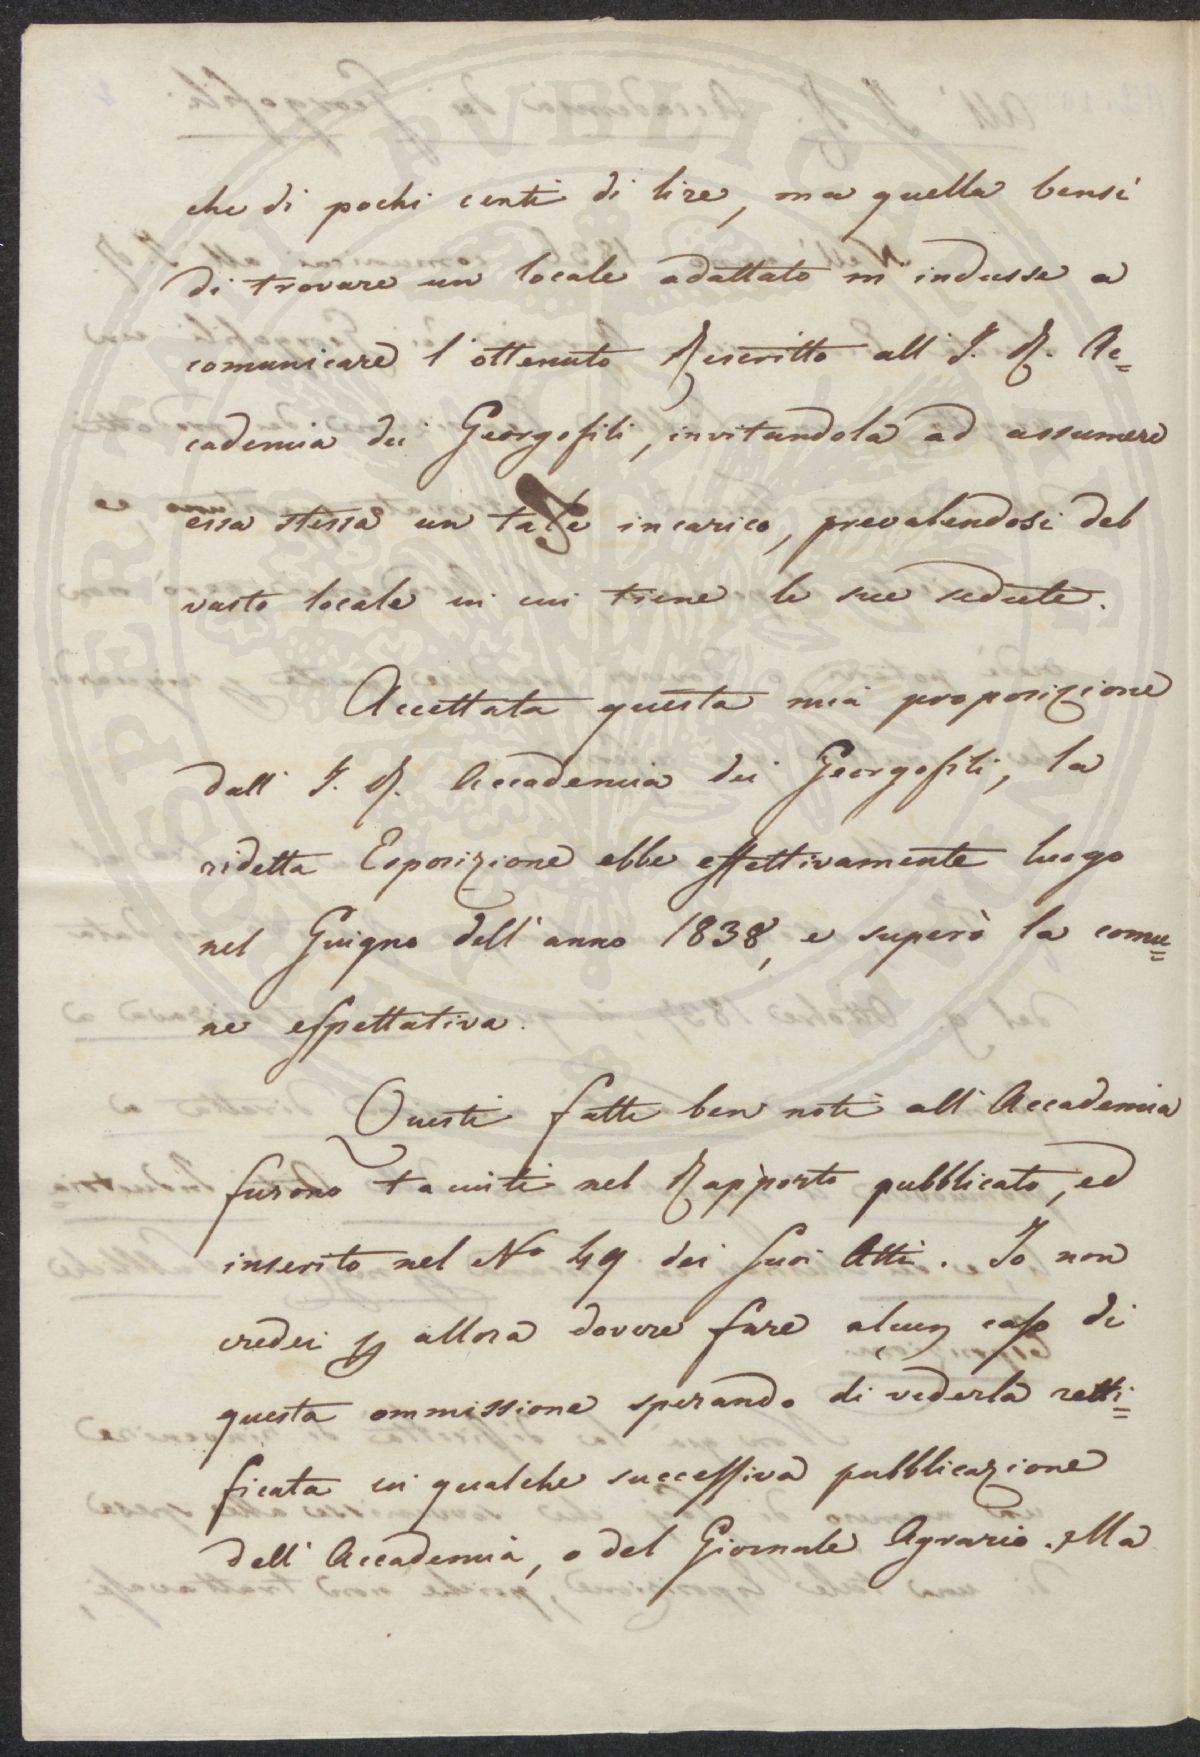 che di pochi centi di lire, ma quella bensì
di trovare un locale adattato m'indusse a
comunicare l'ottenuto Rescritto all'I. R. Ac=
cademia dei Georgofili, invitandola ad assumere
essa stessa un tale incarico, prevalendosi del
vasto locale in cui tiene le sue sedute.
Accettata questa mia proposizione
dall'I. R. Accademia dei Georgofili, la
ridetta Esposizione ebbe effettivamente luogo
nel Giugno dell'anno 1838, e superò la comu=
ne espettativa.
Questi fatti ben noti all'Accademia
furono taciuti nel Rapporto pubblicato, ed
inserito nel No 49 dei suoi Atti. Io non
credei p allora dovere fare alcun caso di
questa ommissione sperando di vederla retti=
ficata in qualche successiva pubblicazione
dell'Accademia, o del Giornale Agrario. Ma